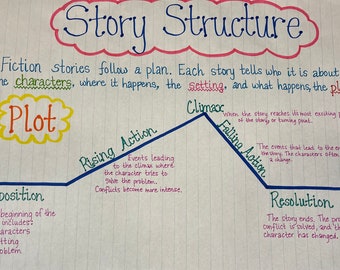 Story Structure
Fiction stories follow a plan. Each story tells who it is about
the characters, where it happens, the setting, and what happens, the pl
Plot
Climax
When the story reaches its most exciting p
of the story or turning point.
Rising Action
Falling Action
Events leading
to the climax where
the character tries
to solve the problem.
Conflicts become more intense.
The events that lead to the en
the story. The characters often
a change.
position
beginning of the
includes:
aracters
tting
oblem
Resolution
The story ends. The pro
conflict is solved, and th
character has changed.